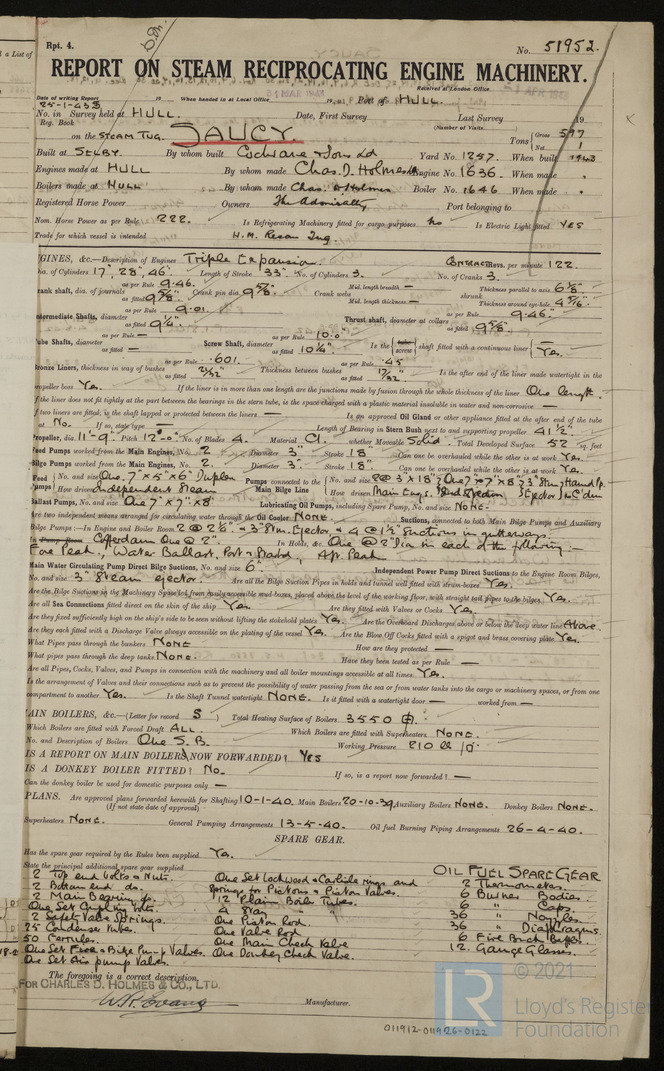 Rpt. 4.
No. 51952.
REPORT ON STEAM RECIPROCATING ENGINE MACHINERY.
Received at London Office
Date of writing Report 19 When handed in at Local Office 19 Port of HULL.
25-1-43
No. in Survey held at HULL Date, First Survey Last Survey 19
Reg. Book (Number of Visits)
on the STEAM TUG. SAUCY. Tons Gross 597 Net 1
Built at SELBY. By whom built Cochrane & Sons Ld Yard No. 1257. When built 1943
Engines made at HULL By whom made Chas. D. Holmes Engine No. 1636 When made
Boilers made at HULL By whom made Chas. D Holmes Boiler No. 1646 When made
Registered Horse Power Owners The Admiralty Port belonging to
Nom. Horse Power as per Rule 222. Is Refrigerating Machinery fitted for cargo purposes No Is Electric Light fitted YES
Trade for which vessel is intended
GINES, &c.—Description of Engines Triple Expansion. Revs. per minute 122.
ia. of Cylinders 17", 28", 46". Length of Stroke 33" No. of Cylinders 3. No. of Cranks 3.
rank shaft, dia. of journals as per Rule 9.46. as fitted 9 5/8" Crank pin dia. 9 5/8" Crank webs Mid. length breadth — Mid. length thickness — shrunk Thickness parallel to axis 6 1/8" Thickness around eye-hole 4 5/16"
ntermediate Shafts, diameter as per Rule 9.01. as fitted 9 1/4" Thrust shaft, diameter at collars as per Rule 9.46" as fitted 9 5/8"
ube Shafts, diameter as per Rule — as fitted — Screw Shaft, diameter as per Rule 10.0" as fitted 10 1/4" Is the tube screw shaft fitted with a continuous liner Yes.
ronze Liners, thickness in way of bushes as per Rule .601. as fitted 21/32" Thickness between bushes as per Rule .45 as fitted 17/32" Is the after end of the liner made watertight in the
propeller boss Yes. If the liner is in more than one length are the junctions made by fusion through the whole thickness of the liner One length.
f the liner does not fit tightly at the part between the bearings in the stern tube, is the space charged with a plastic material insoluble in water and non-corrosive —
f two liners are fitted, is the shaft lapped or protected between the liners — Is an approved Oil Gland or other appliance fitted at the after end of the tube
aft No. If so, state type — Length of Bearing in Stern Bush next to and supporting propeller 41 1/2".
Propeller, dia. 11'-9". Pitch 12'-0" No. of Blades 4. Material CI. whether Moveable Solid. Total Developed Surface 52 sq. feet
Feed Pumps worked from the Main Engines, No. 2 Diameter 3" Stroke 18" Can one be overhauled while the other is at work Yes.
Bilge Pumps worked from the Main Engines, No. 2. Diameter 3". Stroke 18" Can one be overhauled while the other is at work Yes.
Feed Pumps No. and size One, 7" x 5" x 6" Duplex How driven Independent Steam
Pumps connected to the Main Bilge Line No. and size 2 @ 3 x 18"; One 7" x 7" x 8"; 3" Stm; Hand Pp. How driven Main Engs.
Ballast Pumps, No. and size One 7" x 7" x 8" Lubricating Oil Pumps, including Spare Pump, No. and size NONE.
Are two independent means arranged for circulating water through the Oil Cooler NONE. Suctions, connected to both Main Bilge Pumps and Auxiliary
Bilge Pumps :—In Engine and Boiler Room 2 @ 2 1/2" + 3" Stm. Ejector & 4 @ 1 1/2" Suctions in gutterways.
In Pump Room Cofferdam One @ 2". In Holds, &c. One @ 2" Dia in each of the following:—
Fore Peak, Water Ballast, Port & Starbd, Aft Peak
Main Water Circulating Pump Direct Bilge Suctions, No. and size 6". Independent Power Pump Direct Suctions to the Engine Room Bilges,
No. and size 3" Steam ejector. Are all the Bilge Suction Pipes in holds and tunnel well fitted with strum-boxes Yes.
Are the Bilge Suctions in the Machinery Space led from easily accessible mud-boxes, placed above the level of the working floor, with straight tail pipes to the bilges Yes.
Are all Sea Connections fitted direct on the skin of the ship Yes Are they fitted with Valves or Cocks Yes.
Are they fixed sufficiently high on the ship's side to be seen without lifting the stokehold plates Yes. Are the Overboard Discharges above or below the deep water line Above
Are they each fitted with a Discharge Valve always accessible on the plating of the vessel Yes. Are the Blow Off Cocks fitted with a spigot and brass covering plate Yes.
What Pipes pass through the bunkers NONE How are they protected —
What pipes pass through the deep tanks NONE. Have they been tested as per Rule —
Are all Pipes, Cocks, Valves, and Pumps in connection with the machinery and all boiler mountings accessible at all times Yes.
Is the arrangement of Valves and their connections such as to prevent the possibility of water passing from the sea or from water tanks into the cargo or machinery spaces, or from one
compartment to another Yes. Is the Shaft Tunnel watertight NONE. Is it fitted with a watertight door — worked from —
AIN BOILERS, &c.—(Letter for record S) Total Heating Surface of Boilers 3550
Which Boilers are fitted with Forced Draft ALL. Which Boilers are fitted with Superheaters NONE.
No. and Description of Boilers One S.B. Working Pressure 210 lb
IS A REPORT ON MAIN BOILERS NOW FORWARDED? YES
IS A DONKEY BOILER FITTED? No. If so, is a report now forwarded? —
Can the donkey boiler be used for domestic purposes only —
PLANS. Are approved plans forwarded herewith for Shafting 10-1-40. Main Boilers 20-10-39 Auxiliary Boilers NONE. Donkey Boilers NONE.
(If not state date of approval)
Superheaters NONE. General Pumping Arrangements 13-5-40. Oil fuel Burning Piping Arrangements 26-4-40.
SPARE GEAR.
Has the spare gear required by the Rules been supplied Yes.
State the principal additional spare gear supplied OIL FUEL SPARE GEAR
2 Top end bolts & Nuts. One Set Lockwood & Carlisle rings and 2 Thermometers.
2 Bottom end do. Springs for Pistons & Piston Valves. 6 Burner Bodies.
2 Main Bearing do. 12 Plain Boiler Tubes. 6 " Caps.
One Set Coupling bolts. 4 Stay " 36 " Nozzles.
2 Safety Valve Springs. One Piston Rod. 36 " Diaphragms.
25 Condenser tubes. One Valve Rod 6 Fire Brick Baffles.
50 Ferrules. One Main Check Valve 12. Gauge Glasses.
One Set Feed & Bilge Pump Valves. One Donkey Check Valve.
One Set Air pump Valves.
The foregoing is a correct description,
FOR CHARLES D. HOLMES & CO., LTD.
W.R. Evans Manufacturer.
© 2021
LR
Lloyd's Register
Foundation
011912-011926-0122